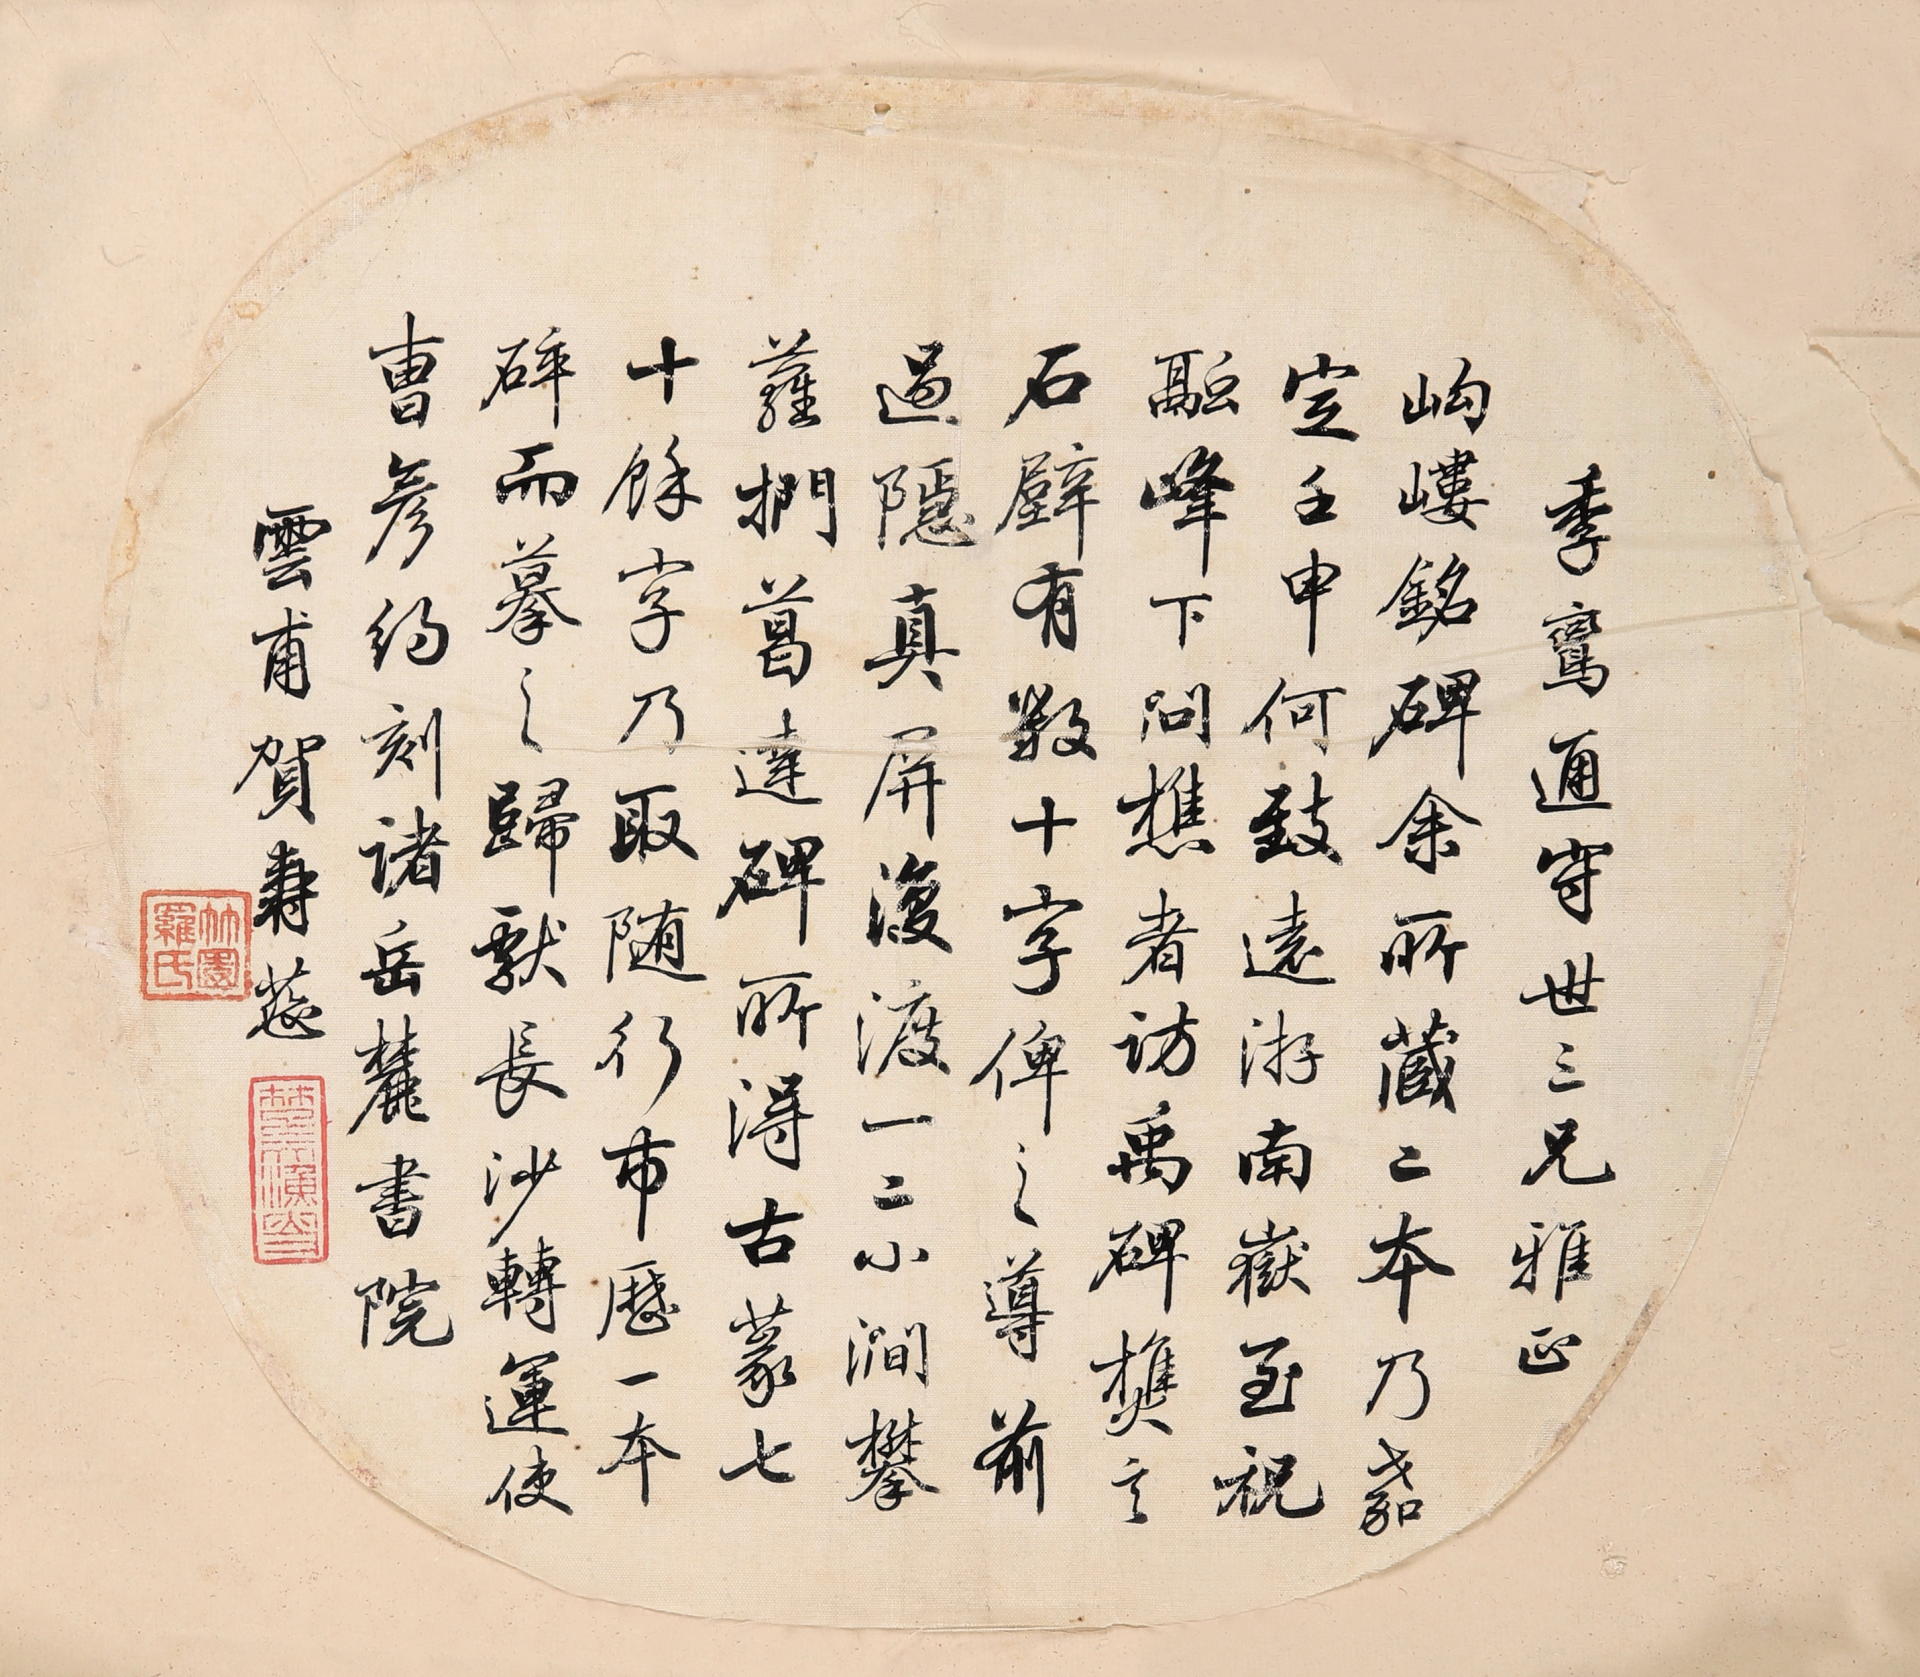 季鸞通守世三兄雅正
岣嶁銘碑余所藏二本乃嘉
定壬申何致遠游南嶽至祝
融峰下問樵者訪禹碑樵言
石壁有數十字俾之導前
過隱真屏復渡一二小澗攀
蘿捫葛達碑所得古篆七
十餘字乃取随行市歷一本
碎而摹之歸獻長沙轉運使
曹彥約刻諸岳麓書院
雲甫賀壽慈
竹園
羅氏